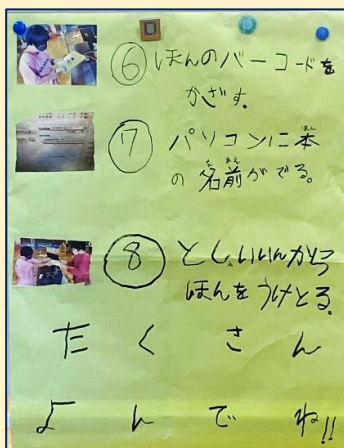 ⑥ ほんのバーコードを
かざす。
⑦ パソコンに本
の名前がでる。
⑧ としょいいんから
ほんをうけとる。
たくさん
よんでね!!